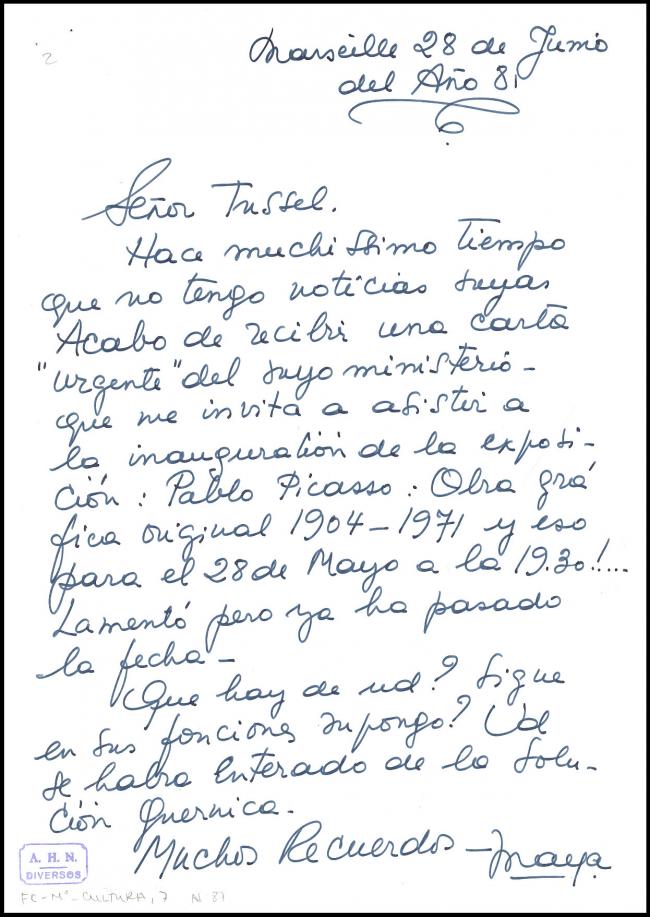 2
Marseille 28 de Junio
del Año 81
Señor Tussel.
Hace muchissimo tiempo
que no tengo noticias suyas
Acabo de recibri una carta
"urgente" del suyo ministerio -
que me invita a asistir a
la inauguration de la exposi-
ción : Pablo Picasso : Obra grá
fica original 1904-1971 y eso
para el 28 de Mayo a la 19.30!....
Lamentó pero ya ha pasado
la fecha -
Que hay de ud? Sigue
en sus fonciones supongo? Ud
se habra enterado de la Solu-
ción Guernica.
Muchos Recuerdos - Maya.
A. H. N.
DIVERSOS
FC-Mº-CULTURA, 7 N 87